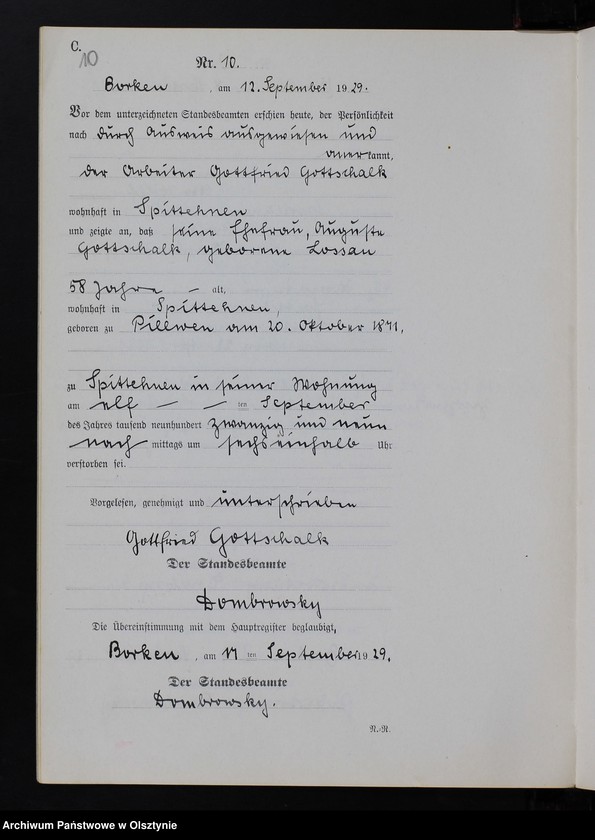 C.
10
Nr. 10.
Borken, am 12. September 1929.
Vor dem unterzeichneten Standesbeamten erschien heute, der Persönlichkeit
nach durch Ausweis ausgewiesen und
anerkannt,
der Arbeiter Gottfried Gottschalk
wohnhaft in Spittehnen
und zeigte an, daß seine Ehefrau, Auguste
Gottschalk, geborene Lossau
58 Jahre — alt,
wohnhaft in Spittehnen,
geboren zu Pillwen am 20. Oktober 1871,
zu Spittehnen in seiner Wohnung
am elf — — ten September
des Jahres tausend neunhundert zwanzig und neun
nach mittags um sechseinhalb Uhr
verstorben sei.
Vorgelesen, genehmigt und unterschrieben
Gottfried Gottschalk
Der Standesbeamte
Dombrowsky
Die Übereinstimmung mit dem Hauptregister beglaubigt,
Borken, am ten September 1929.
Der Standesbeamte
Dombrowsky.
N.-R.
Archiwum Państwowe w Olsztynie